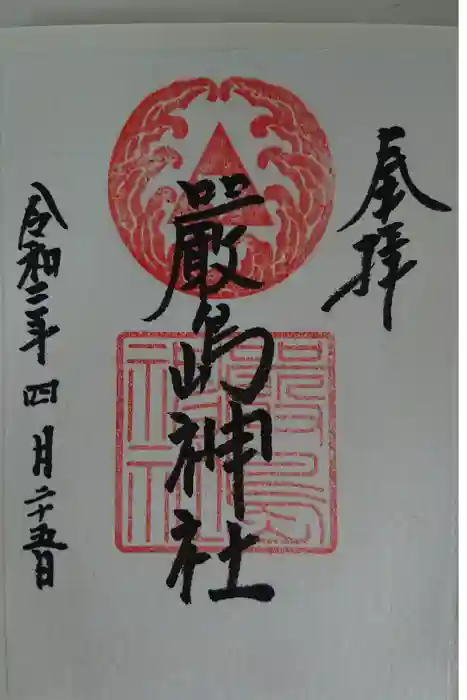 奉拝
厳嶋神社
令和二年四月二十五日